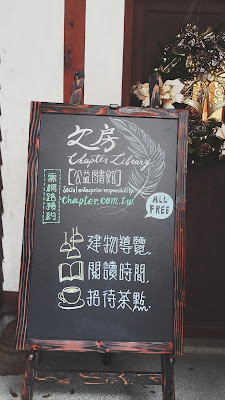 文房
Chapter Library
[公益圖書館]
[social enterprise responsibility]
chapter.com.tw
需網路預約
ALL FREE
建物導覽.
閱讀時間.
招待茶點.